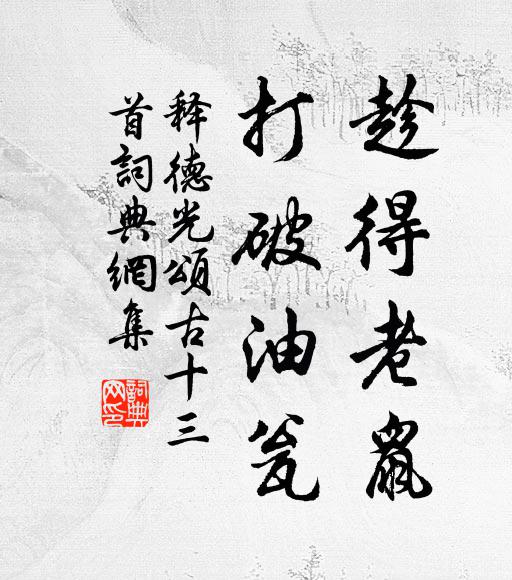 趁得老鼠
打破油瓮
释德光頌古十三
首詞典網集
詞典
网印